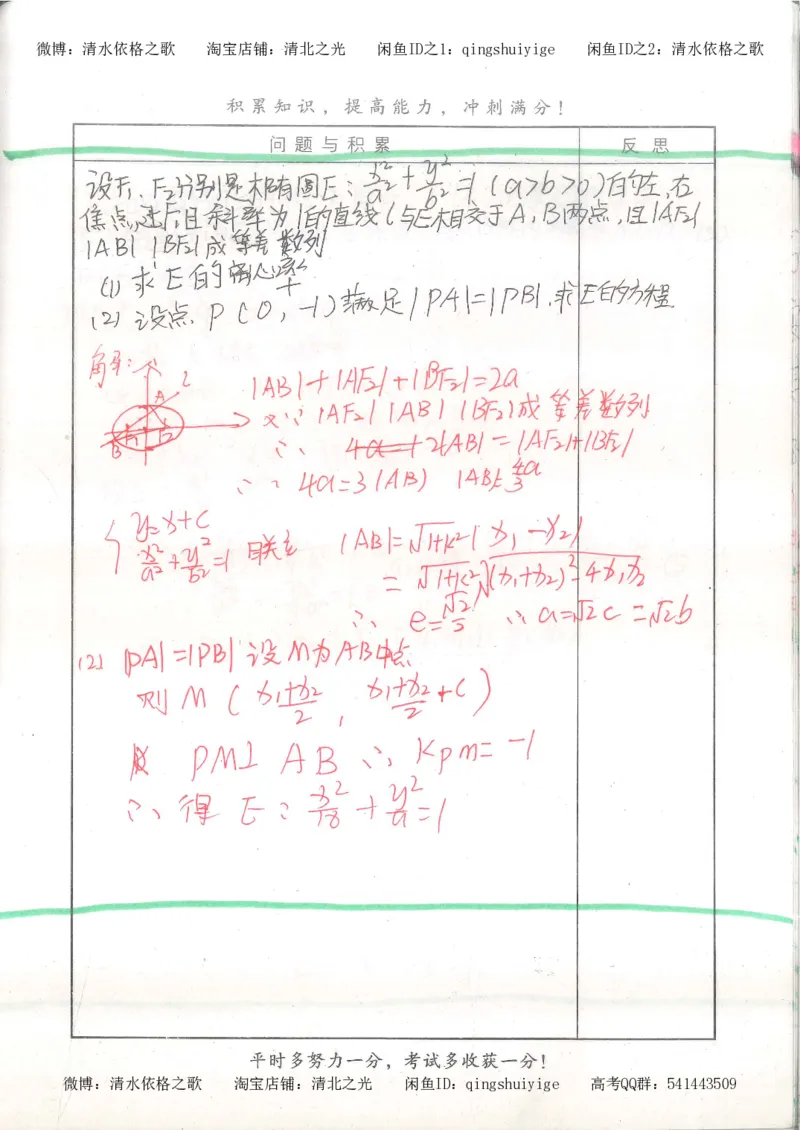 微博：清水依格之歌 淘宝店铺：清北之光 闲鱼ID之1：qingshuiyige 闲鱼ID之2：清水依格之歌
积累知识，提高能力，冲刺满分！
问题与积累 反思
设F₁、F₂分别是椭圆E：x²/a²+y²/b²=1（a>b>0）的左、右
焦点，过F₁且斜率为1的直线l与E相交于A，B两点，且|AF₂|
|AB| |BF₂|成等差数列
(1) 求E的离心率
(2) 设点P(0，-1)满足|PA|=|PB|，求E的方程
解：
l
A
F₁
F₂
B
|AB|+|AF₂|+|BF₂|=2a
又∵|AF₂| |AB| |BF₂|成等差数列
∴ 2|AB|=|AF₂|+|BF₂|
∴ 4a=3|AB| |AB|=4a/3
{ y=x+c
x²/a²+y²/b²=1 联立 |AB|=√1+k² | x₁-x₂|
=√1+k² √(x₁+x₂)²-4x₁x₂
∴ e=√2/2 ∴ a=√2c=√2b
(2) |PA|=|PB| 设M为AB中点
则M( x₁+x₂/2 , x₁+x₂/2+c )
PM⊥AB ∴ Kpm=-1
∴ 得E：x²/18+y²/9=1
平时多努力一分，考试多收获一分！
微博：清水依格之歌 淘宝店铺：清北之光 闲鱼ID：qingshuiyige 高考QQ群：541443509